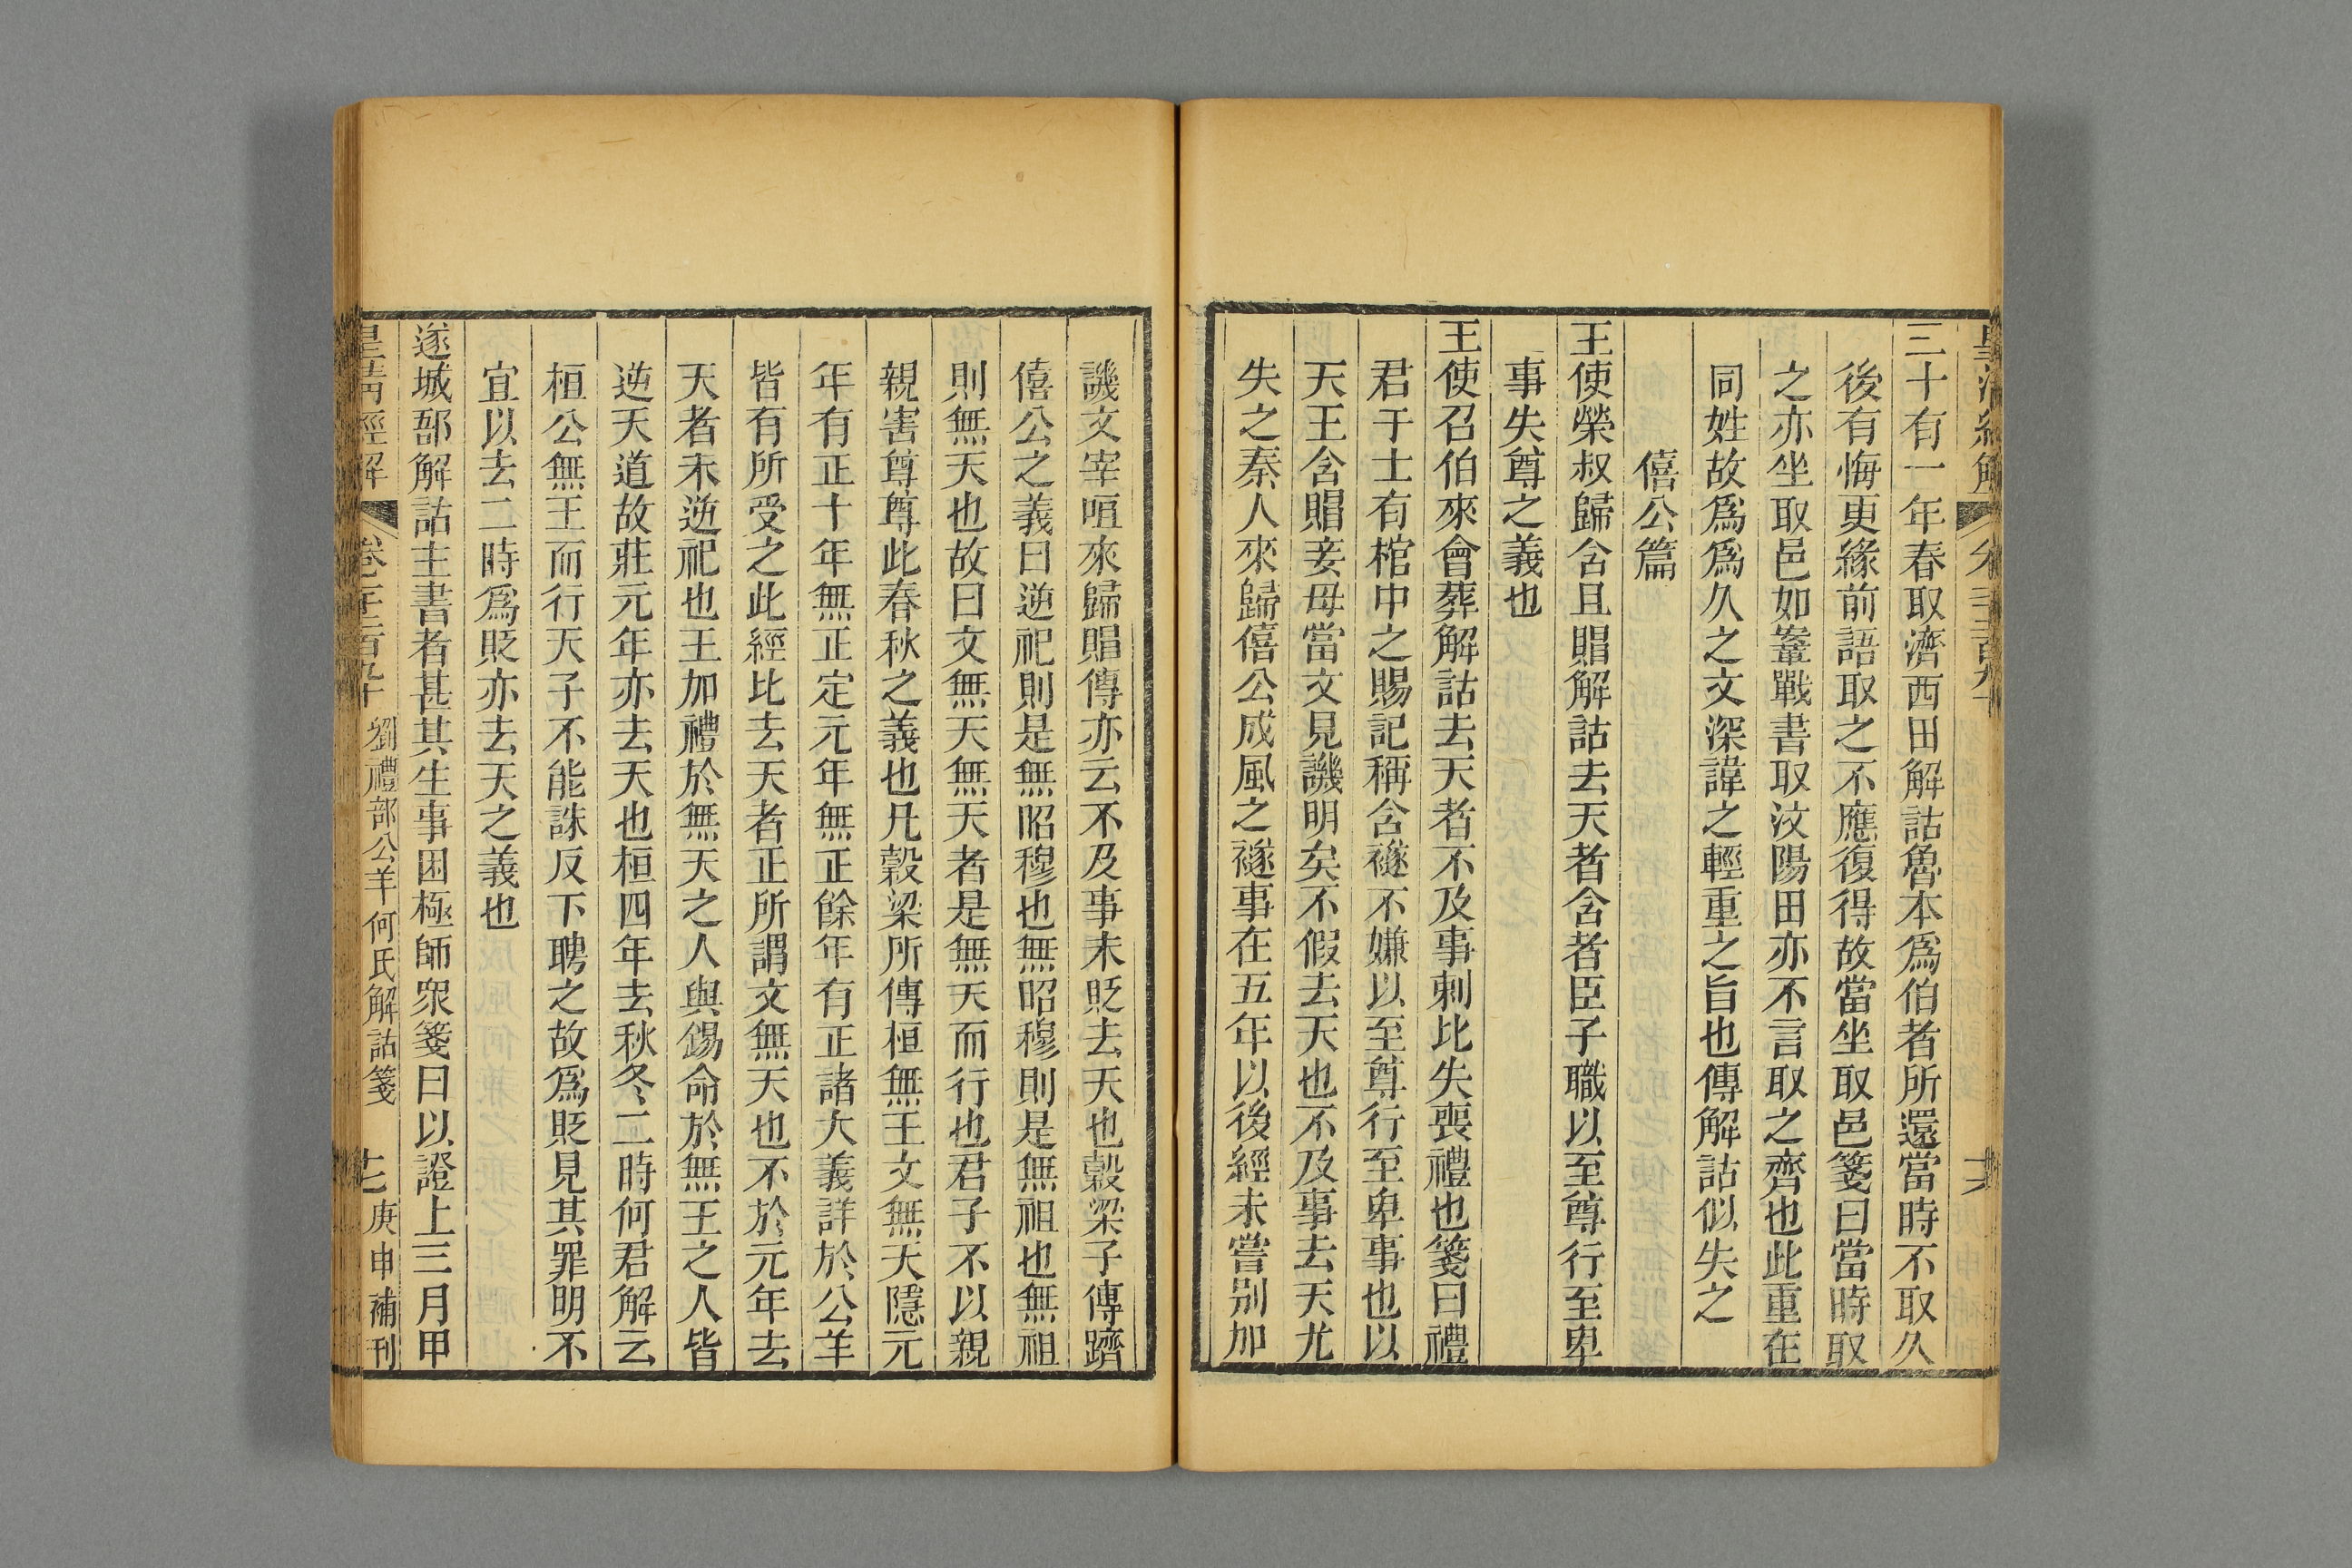 三十有一年春取濟西田解詁魯本爲伯者所還當時不取久
後有悔更緣前語取之不應復得故當坐取邑箋曰當時取
之亦坐取邑如鞌戰書取汶陽田亦不言取之齊也此重在
同姓故爲爲久之文深諱之輕重之旨也傳解詁似失之
僖公篇
王使榮叔歸含且賵解詁去天者含者臣子職以至尊行至卑
事失尊之義也
王使召伯來會葬解詁去天者不及事刺比失喪禮也箋曰禮
君于士有棺中之賜記稱含襚不嫌以至尊行至卑事也以
天王含賵妾母當文見譏明矣不假去天也不及事去天尤
失之秦人來歸僖公成風之襚事在五年以後經未嘗別加
譏文宰咺來歸賵傳亦云不及事未貶去天也穀梁子傳躋
僖公之義曰逆祀則是無昭穆也無昭穆則是無祖也無祖
則無天也故曰文無天無天者是無天而行也君子不以親
親害尊尊此春秋之義也凡穀梁所傳桓無王文無天隱元
年有正十年無正定元年無正餘年有正諸大義詳於公羊
皆有所受之此經比去天者正所謂文無天也不於元年去
天者未逆祀也王加禮於無天之人與錫命於無王之人皆
逆天道故莊元年亦去天也桓四年去秋冬二時何君解云
桓公無王而行天子不能誅反下聘之故爲貶見其罪明不
宜以去二時爲貶亦去天之義也
遂城郚解詁主書者甚其生事困極師衆箋曰以證上三月甲
皇清經解 卷千二百九十 劉禮部公羊何氏解詁箋 七 庚申補刊